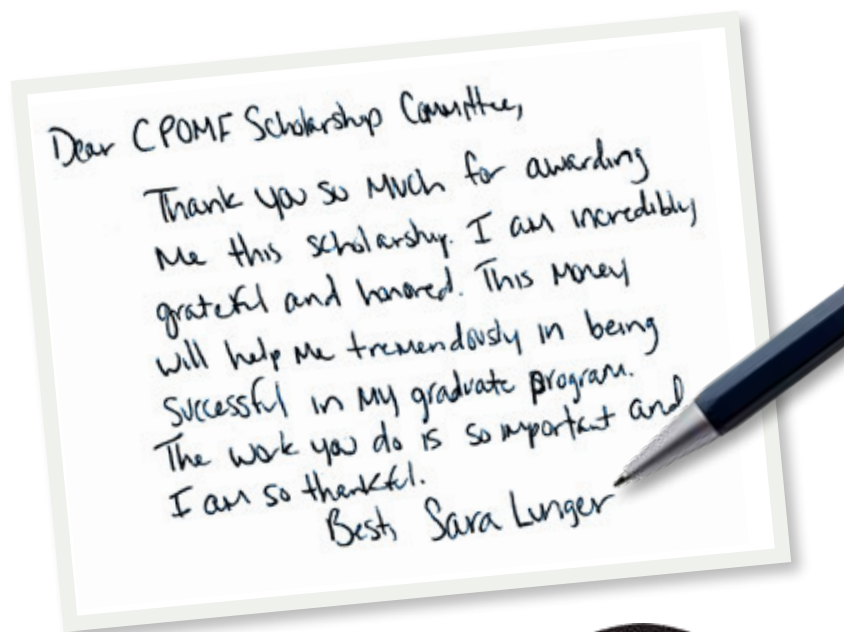 Dear CPOMF Scholarship Committee,
Thank you so much for awarding
me this scholarship. I am incredibly
grateful and honored. This money
will help me tremendously in being
successful in my graduate program.
The work you do is so important and
I am so thankful.
Best, Sara Lunger